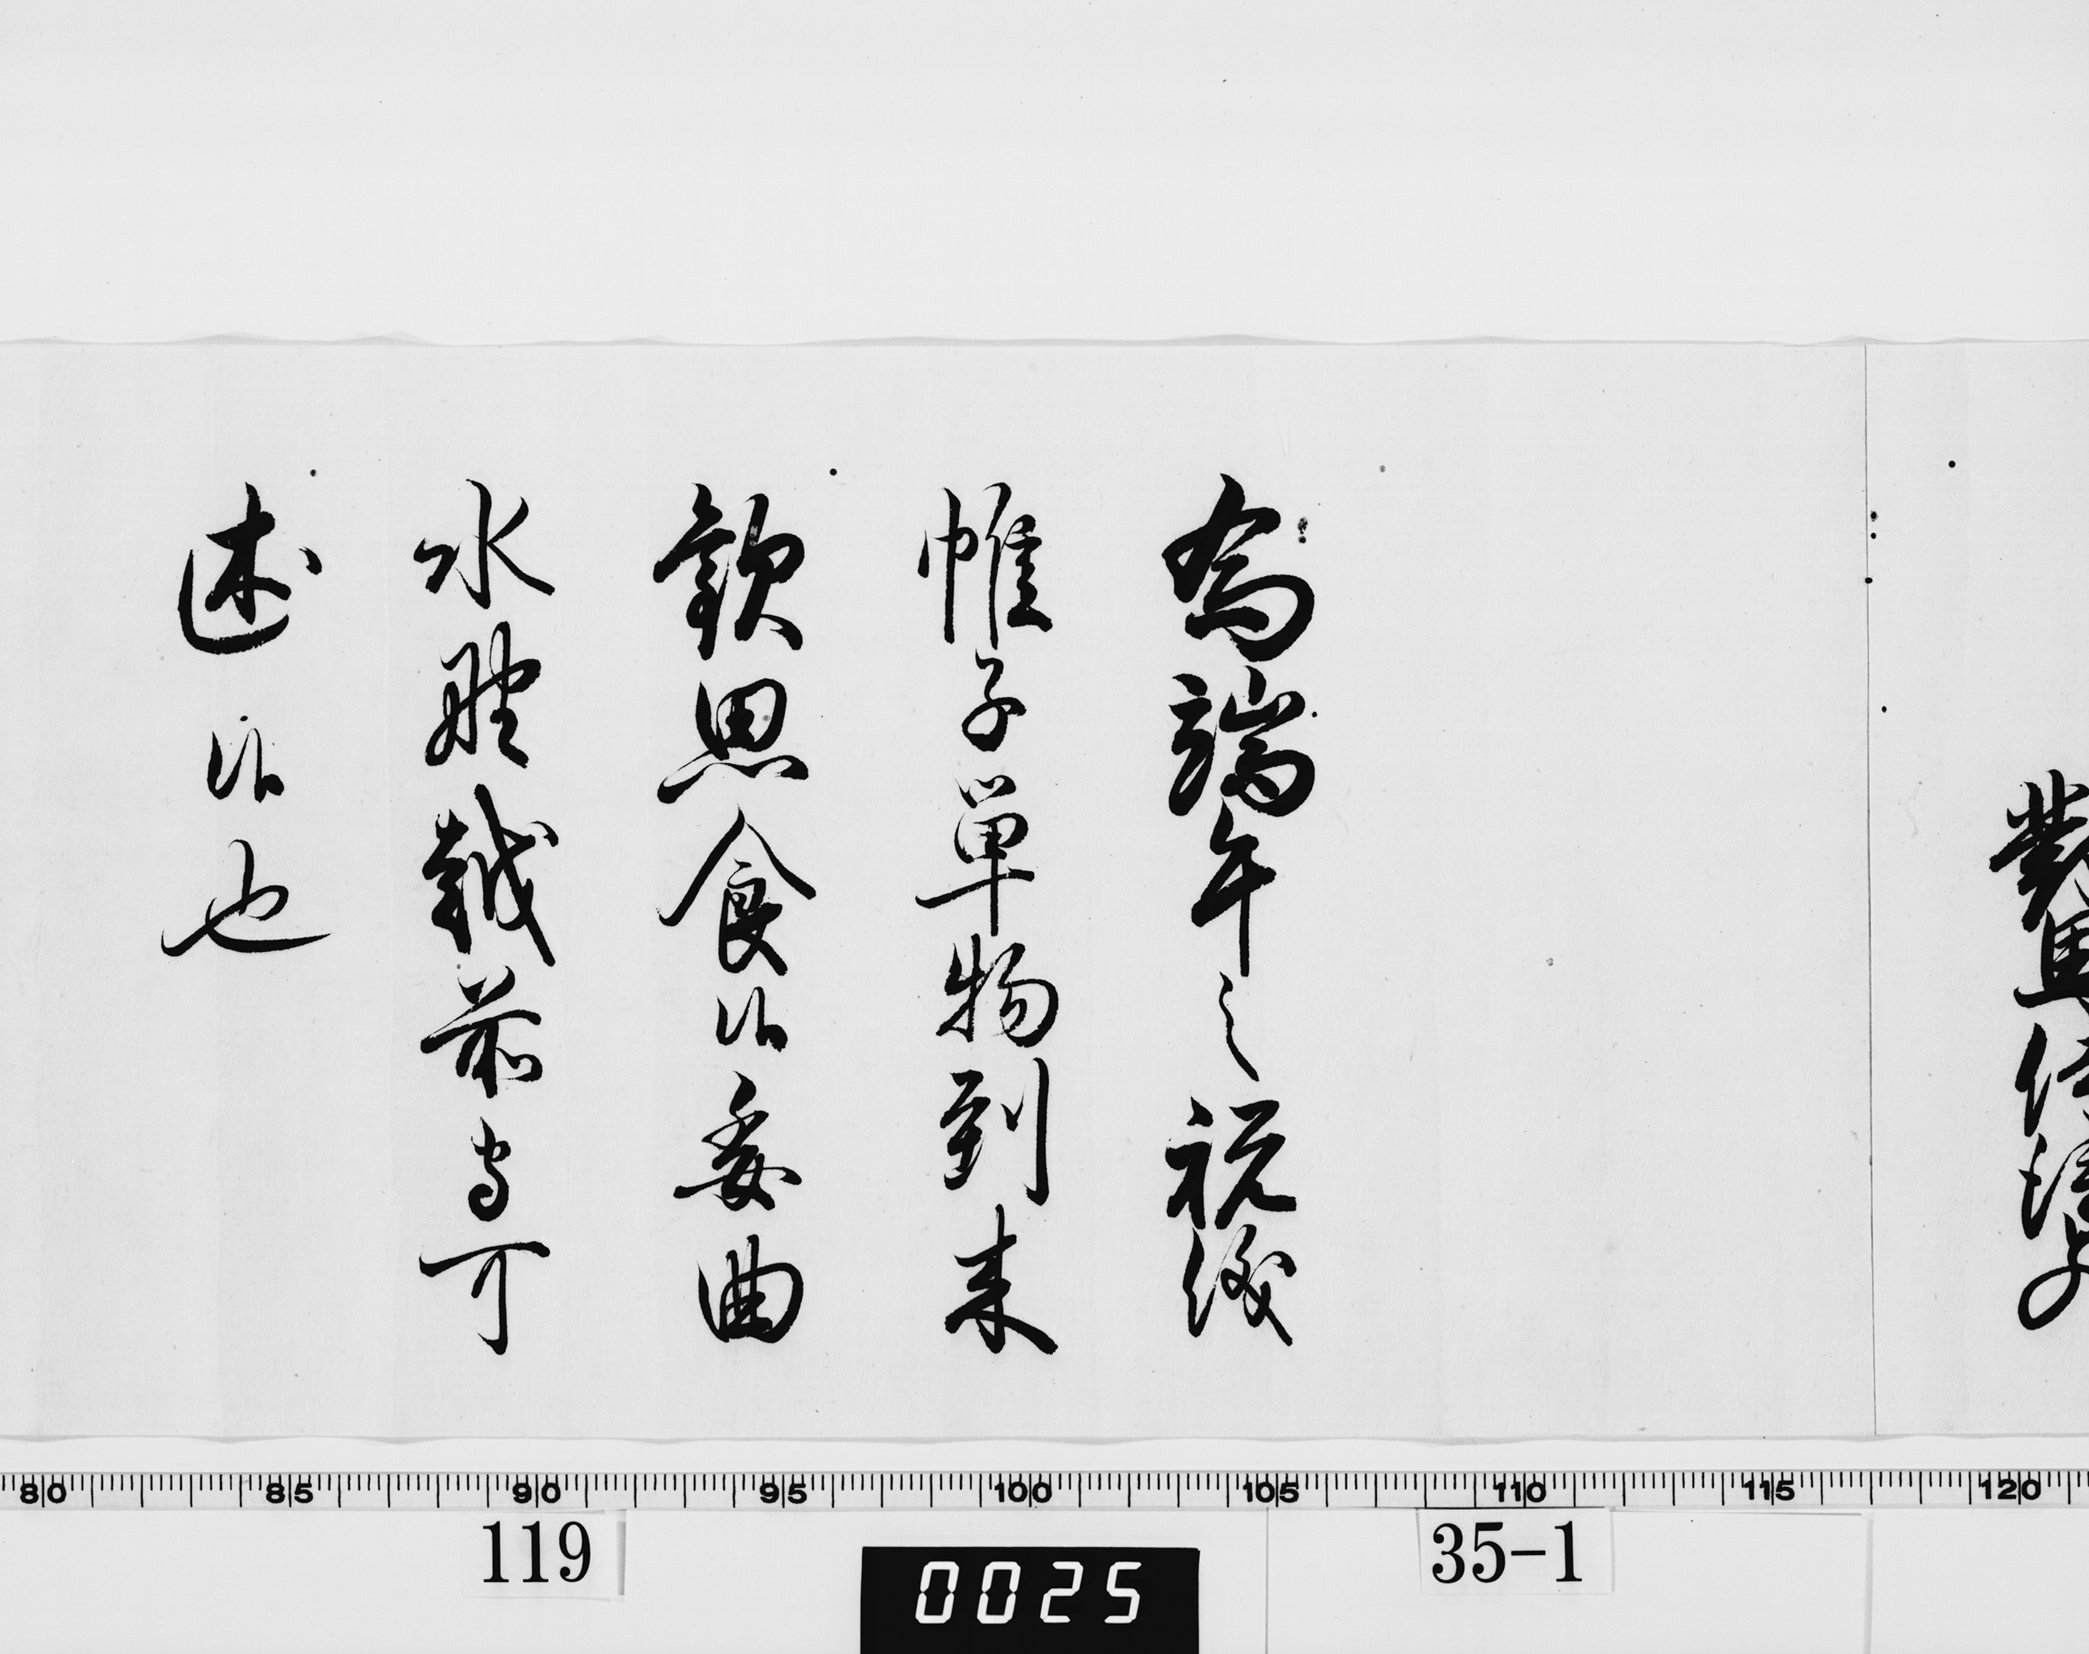 對馬侍従
為端午之祝儀
帷子單物到来
歓思食候委曲
水野越前守可
述候也
80 85 90 95 100 105 110 115 120
119 35-1
0025